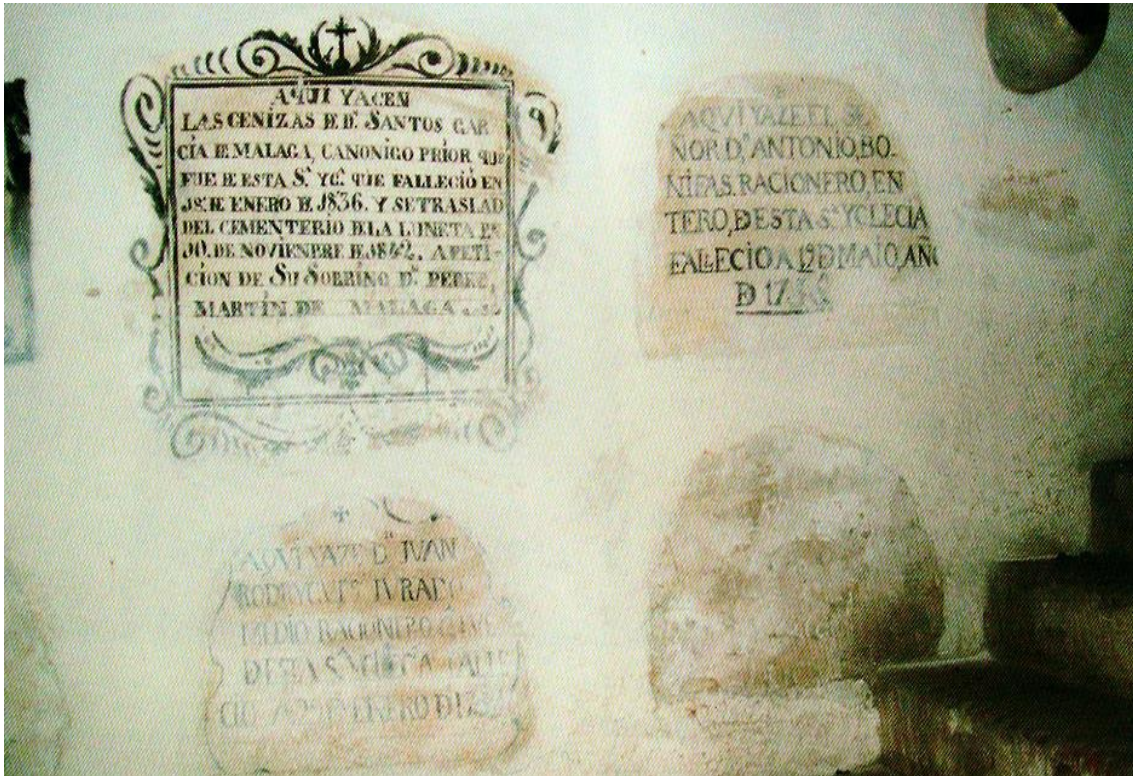 AQUI YACEN
LAS CENIZAS DE Dⁿ. SANTOS GAR
CÍA DE MALAGA, CANONIGO PRIOR QUE
FUE DE ESTA Sᵗᵃ. YGᵃ. QUE FALLECIÓ EN
DE ENERO DE 1836. Y SE TRASLAD
DEL CEMENTERIO DE LA LUNETA EN
30. DE NOVIENBRE DE 1842. A PETI-
CION DE SU SOBRINO Dⁿ.
MARTÍN DE MALAGA
AQUI YAZE EL SE
ÑOR Dⁿ. ANTONIO, BO-
NIFAS. RACIONERO, EN
TERO, DE ESTA Sᵗᵃ YCLECIA
FALLECIO A 19 D MAIO, AÑO
D 17
AQUI YAZE Dⁿ JUAN
JURADO
MEDIO RACIONERO
DE ESTA Sᵗᵃ
CIO A ENERO D 17